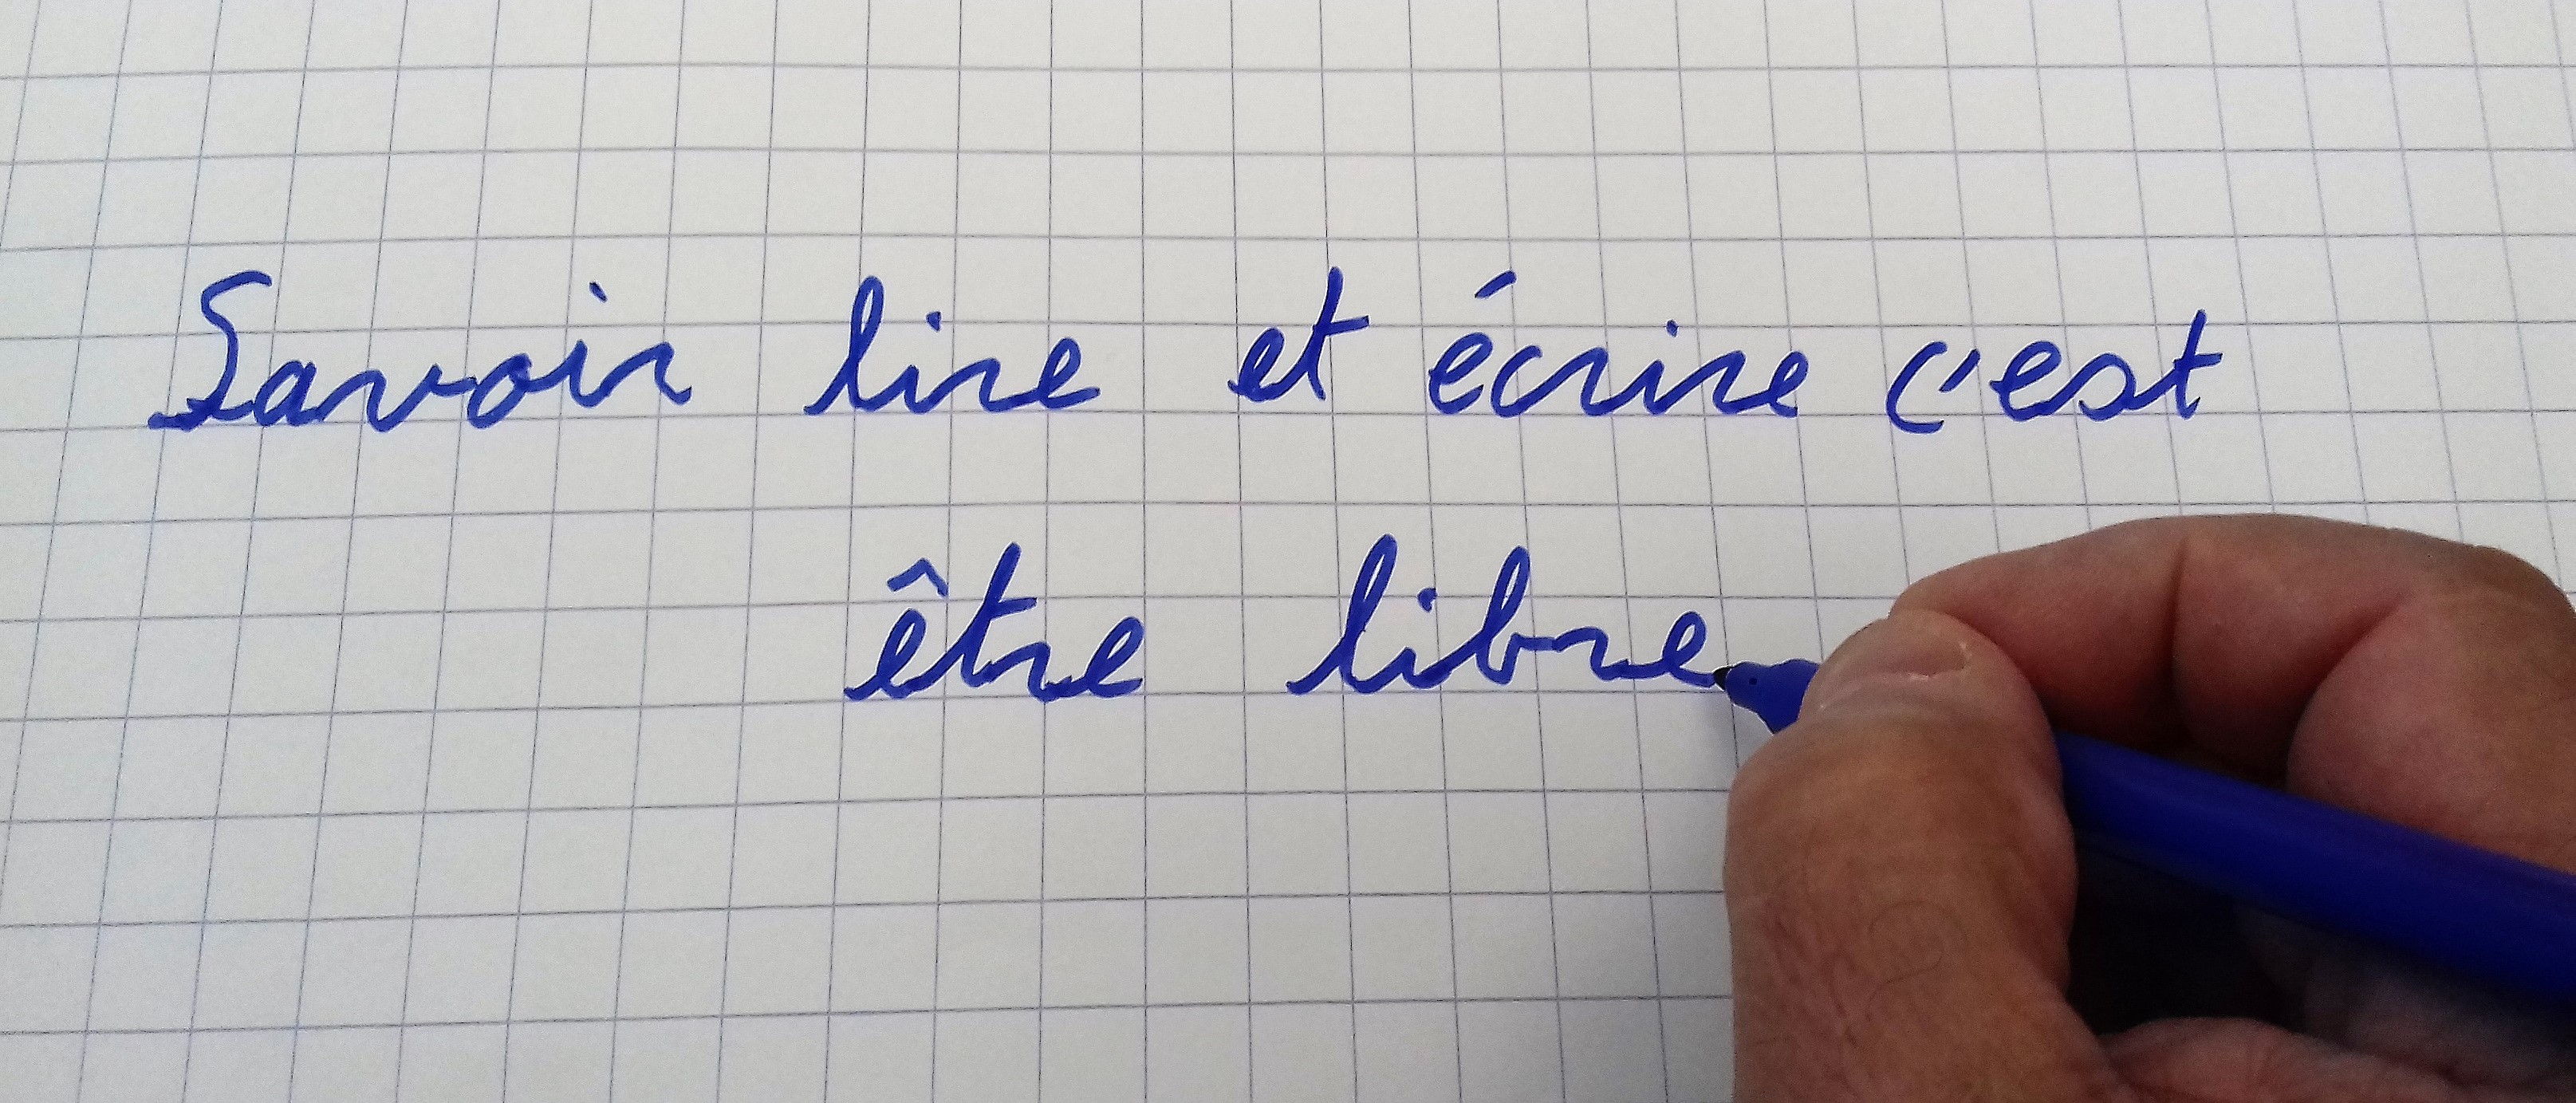 Savoir lire et écrire c'est
être libre